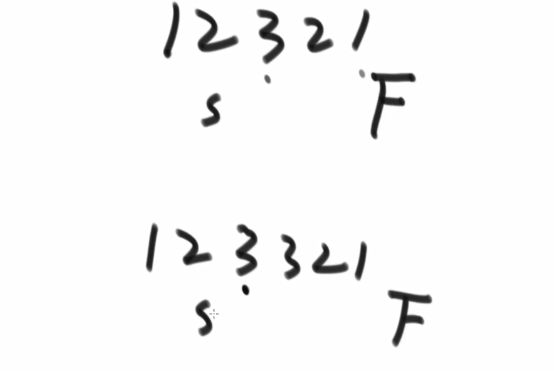 1 2 3 2 1
S F
1 2 3 3 2 1
S F